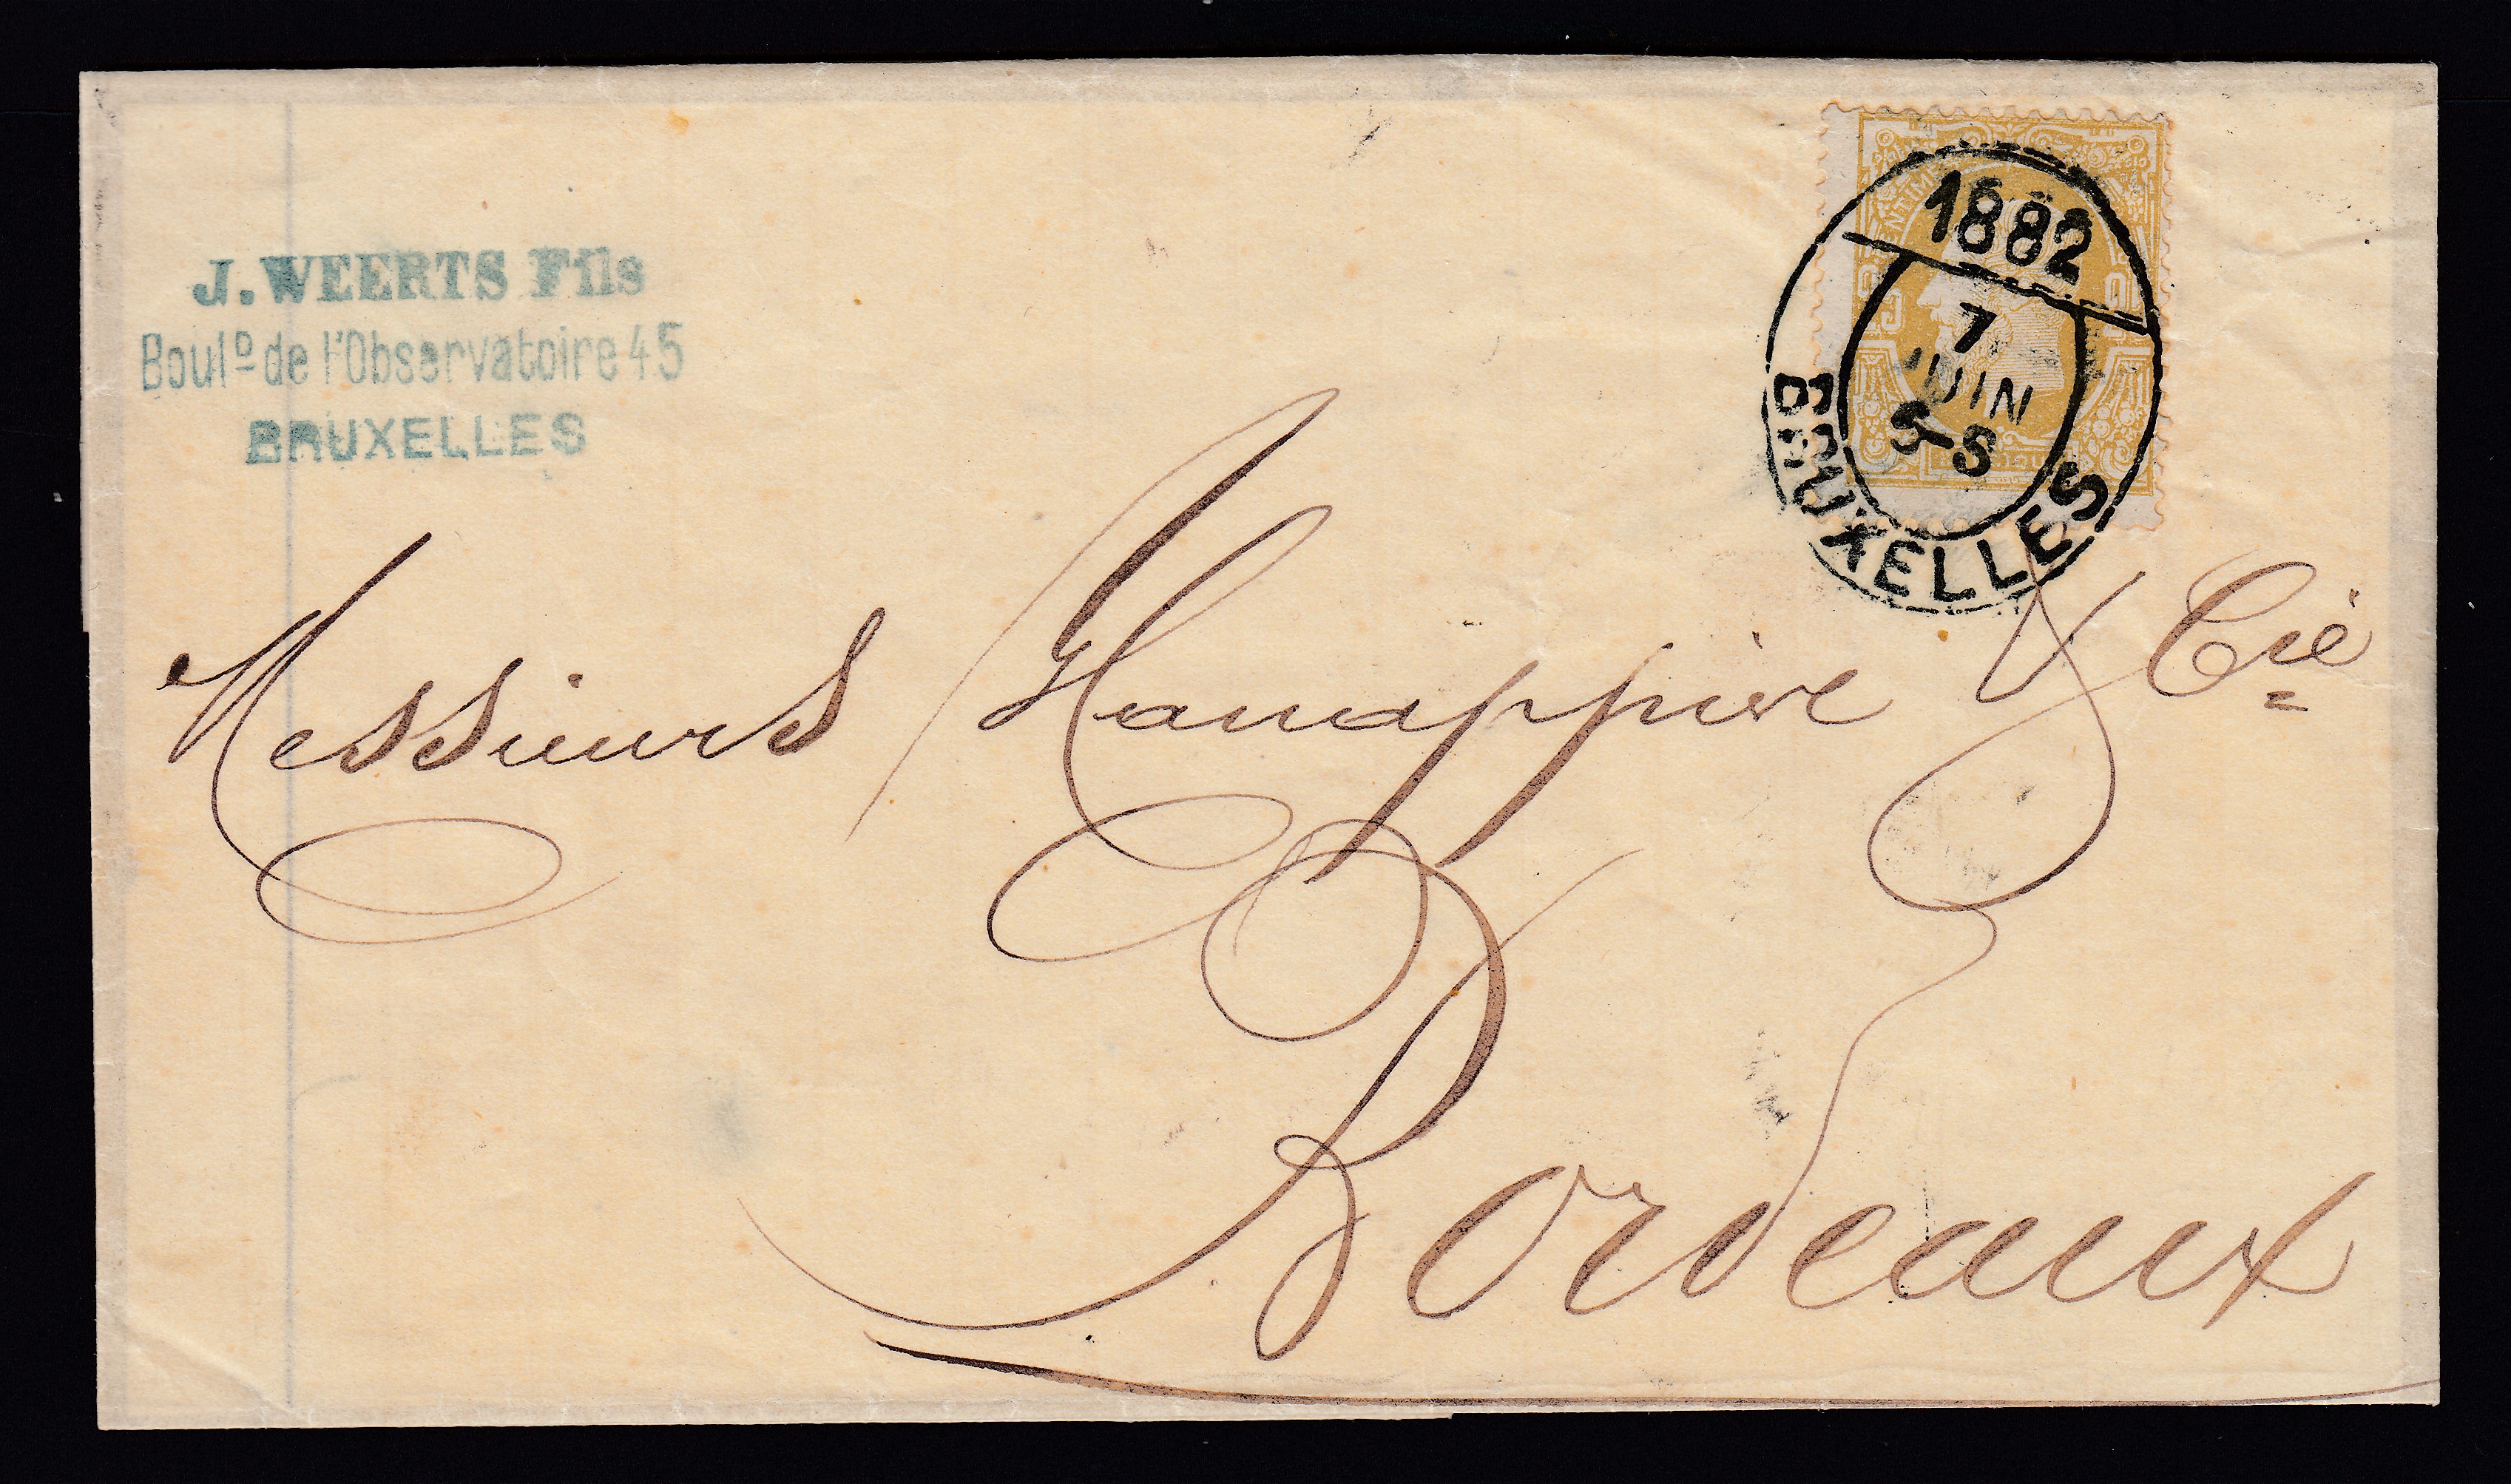 J. WEERTS Fils
Boulᴰ de l'Observatoire 45
BRUXELLES
1882
7
JUIN
5-S
BRUXELLES
Messieurs Hanappier & Cie
Bordeaux